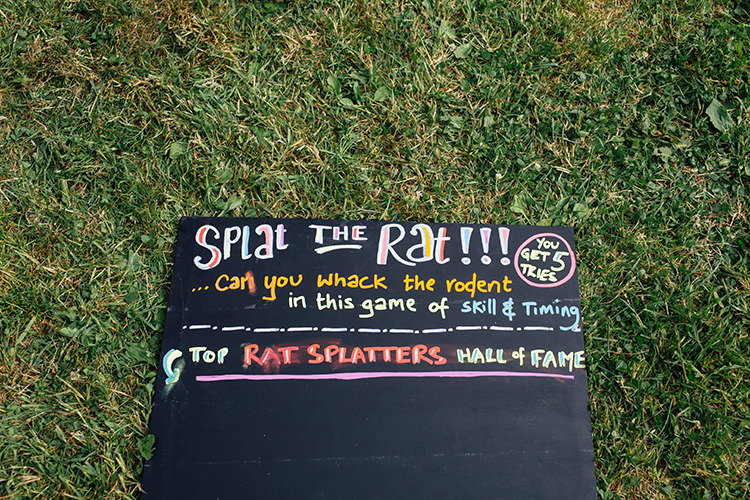 Splat THE Rat!!!
YOU
GET 5
TRIES
... Can you whack the rodent
in this game of Skill & Timing
TOP RAT SPLATTERS HALL of FAME